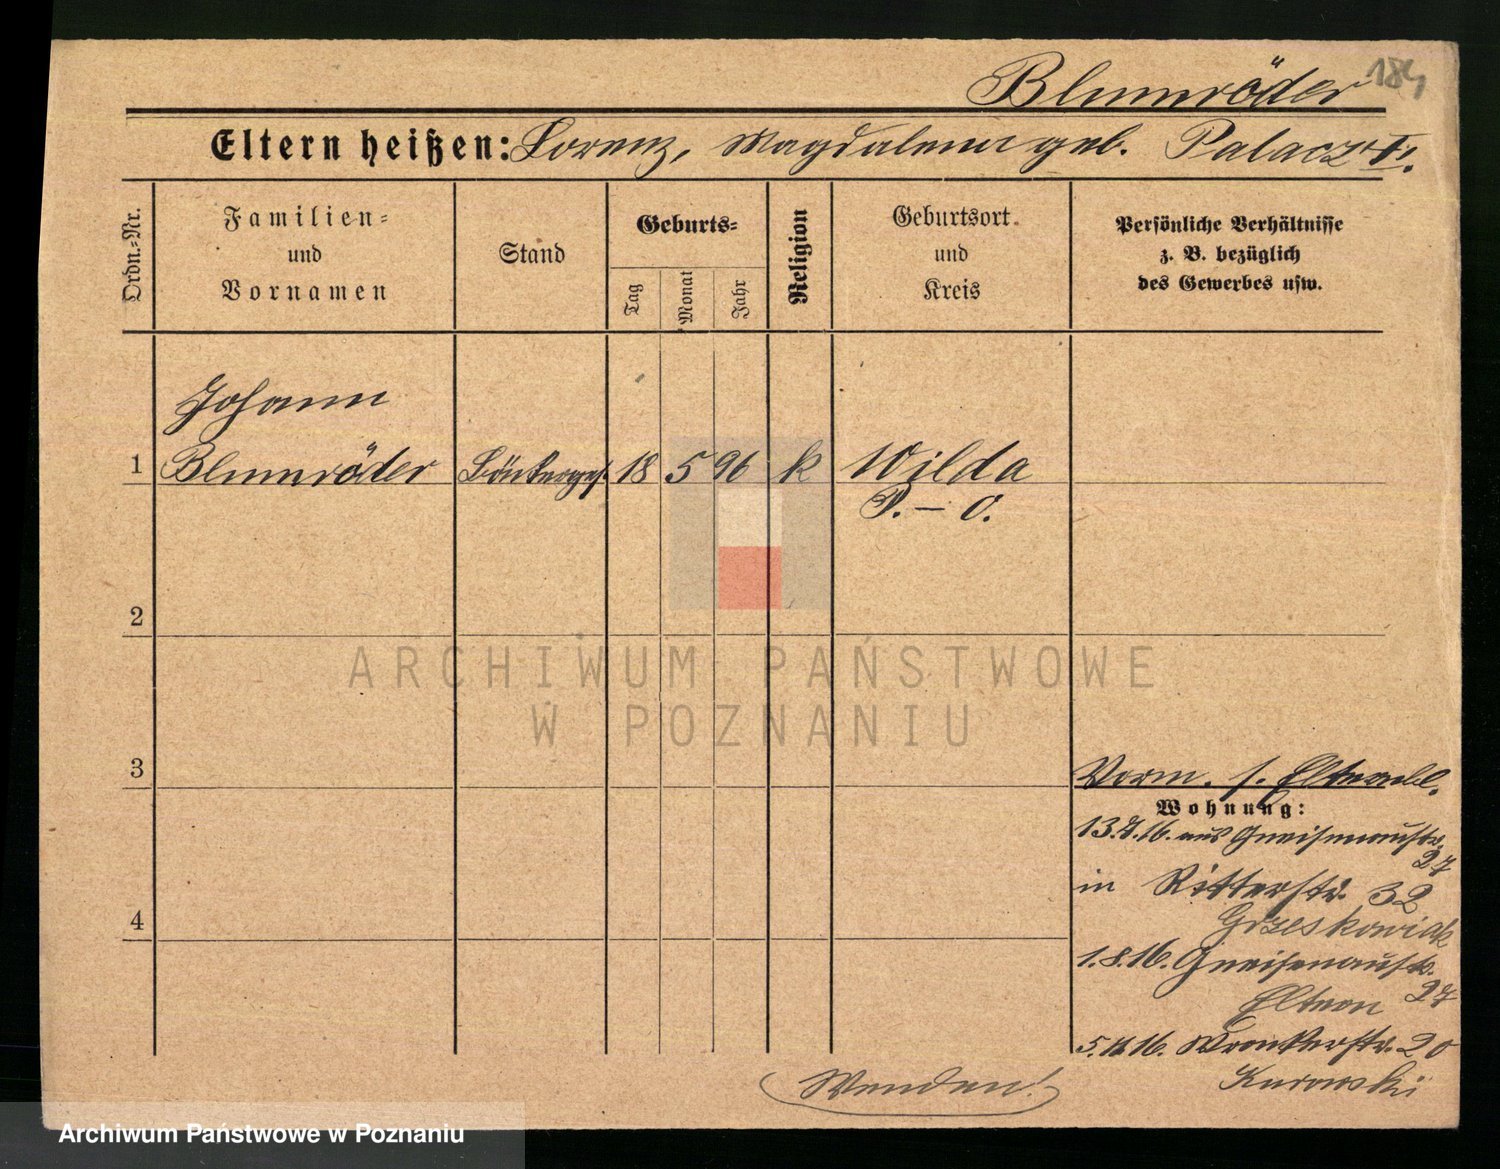 Blumröder 184
Eltern heißen: Lorenz, Magdalena geb. Palacz
Ordn.-Nr.
Familien-
und
Vornamen
Stand
Geburts-
Tag
Monat
Jahr
Religion
Geburtsort
und
Kreis
Persönliche Verhältnisse
z. B. bezüglich
des Gewerbes usw.
Johann
1 Blumröder Bäckerges. 18 5 96 k Wilda
P. – O.
2
ARCHIWUM PAŃSTWOWE
W POZNANIU
3
Vorm. s. Elternbl.
Wohnung:
13.7.16. aus Gneisenaustr.
27
in Ritterstr. 32
Grzeskowiak
4
1.8.16. Gneisenaustr.
27
Eltern
5. 16. Wronkerstr. 20
Kurowski
Wenden!
Archiwum Państwowe w Poznaniu